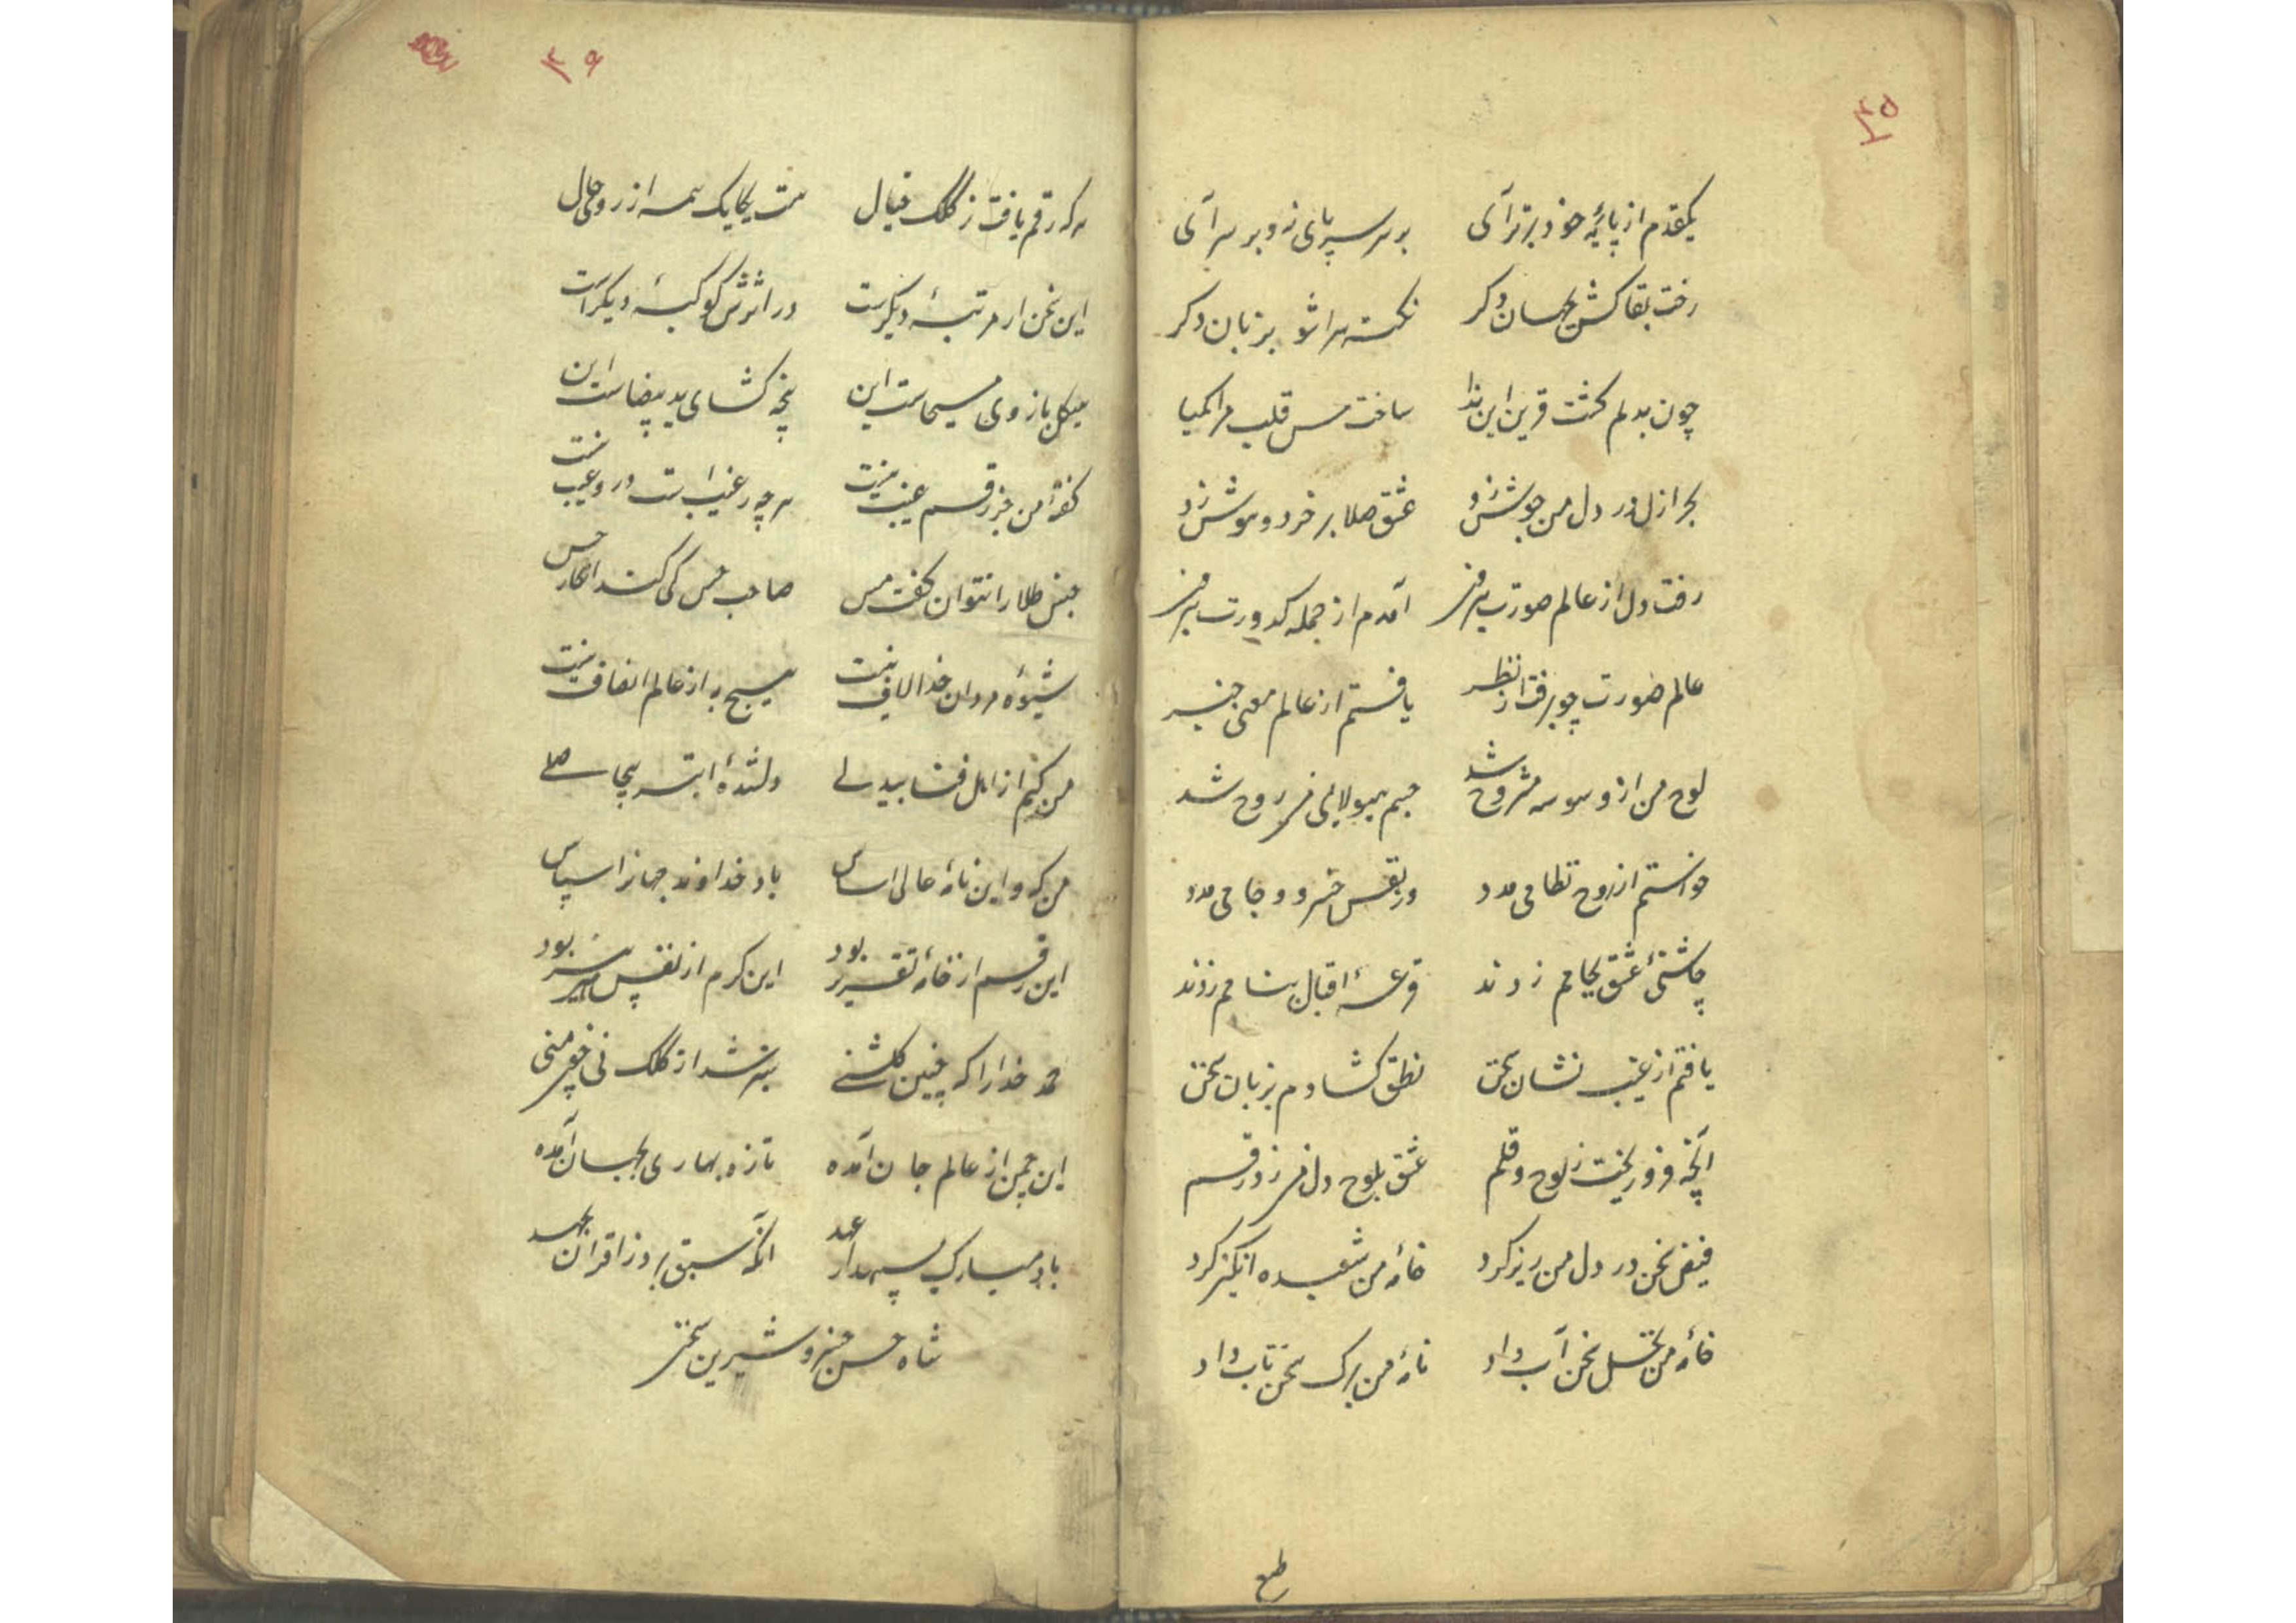 ۳۵
یکقدم از پایهٔ خود برتر آی بر سر سپر پای نه و بر سر آی
رخت بقا کش بجهان دکر نکته سرا شو بزبان دکر
چون بدلم کشت قرین این ندا ساخت مس قلب مرا کیمیا
بحر ازل در دل من جوش زد عشق صلا بر خرد و هوش زد
رفت دل از عالم صورت برون آمدم از جمله کدورت برون
عالم صورت چو برفت از نظر یافتم از عالم معنی خبر
لوح من از وسوسه مشروح شد جسم هیولایی من روح شد
خواستم از روح نظامی مدد وز نفس خسرو و جامی مدد
چاشنیٔ عشق بجامم زدند قرعهٔ اقبال بنامم زدند
یافتم از غیب نشان سخن نطق کشادم بزبان سخن
آنچه فرو ریخت ز لوح و قلم عشق بلوح دل من زد رقم
فیض سخن در دل من ریز کرد خامهٔ من شعبده انگیز کرد
خامهٔ من نخل سخن آب داد نامهٔ من برک سخن تاب داد
۳۶
هر که رقم یافت ز کلک خیال هست یکایک همه از روی حال
این سخن از مرتبهٔ دیکرست در اثرش کوکبهٔ دیکر است
هیکل بازوی مسیحاست این پنجه کشای ید بیضاست این
کفتهٔ من جز رقم غیب نیست هر چه ز غیب است درو عیب نیست
جنس طلا را نتوان کفت مس صاحب حس کی کند انکار حس
شیوهٔ مردان خدا لاف نیست هیچ به از عالم انصاف نیست
من کیم از اهل فنا بیدلی دلشدهٔ ابتر بیحاصلی
من که و این نامهٔ عالی اساس باد خداوند جهانرا سپاس
این رقم از خامهٔ تقدیر بود این کرم از نفس پیر بود
حمد خدا را که چنین کلشنی سبز شد از کلک نی چون منی
این چمن از عالم جان آمده تازه بهاری بجهان آمده
باد مبارک بسپهدار عهد آنکه سبق برد ز اقران بجهد
شاه حسن خسرو شیرین سخن